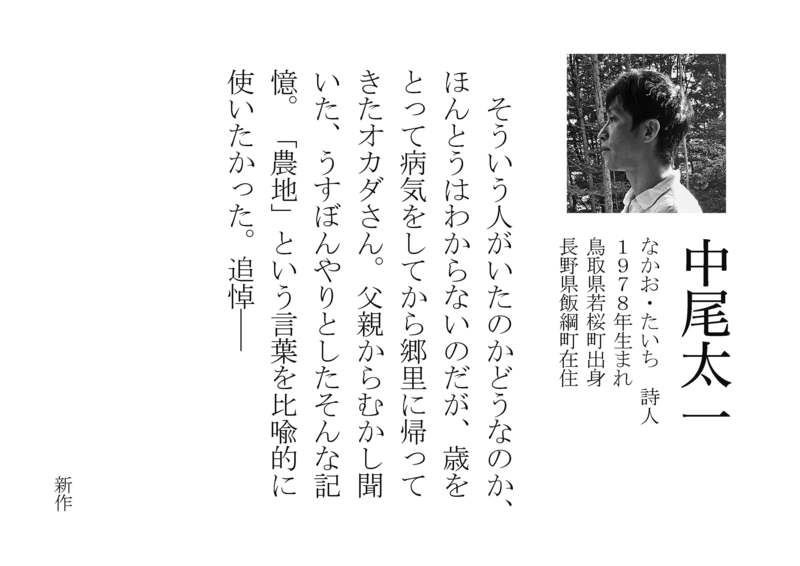 中尾太一
なかお・たいち　詩人
１９７８年生まれ
鳥取県若桜町出身
長野県飯綱町在住
　そういう人がいたのかどうなのか、
ほんとうはわからないのだが、歳を
とって病気をしてから郷里に帰って
きたオカダさん。父親からむかし聞
いた、うすぼんやりとしたそんな記
憶。「農地」という言葉を比喩的に
使いたかった。追悼――
新作